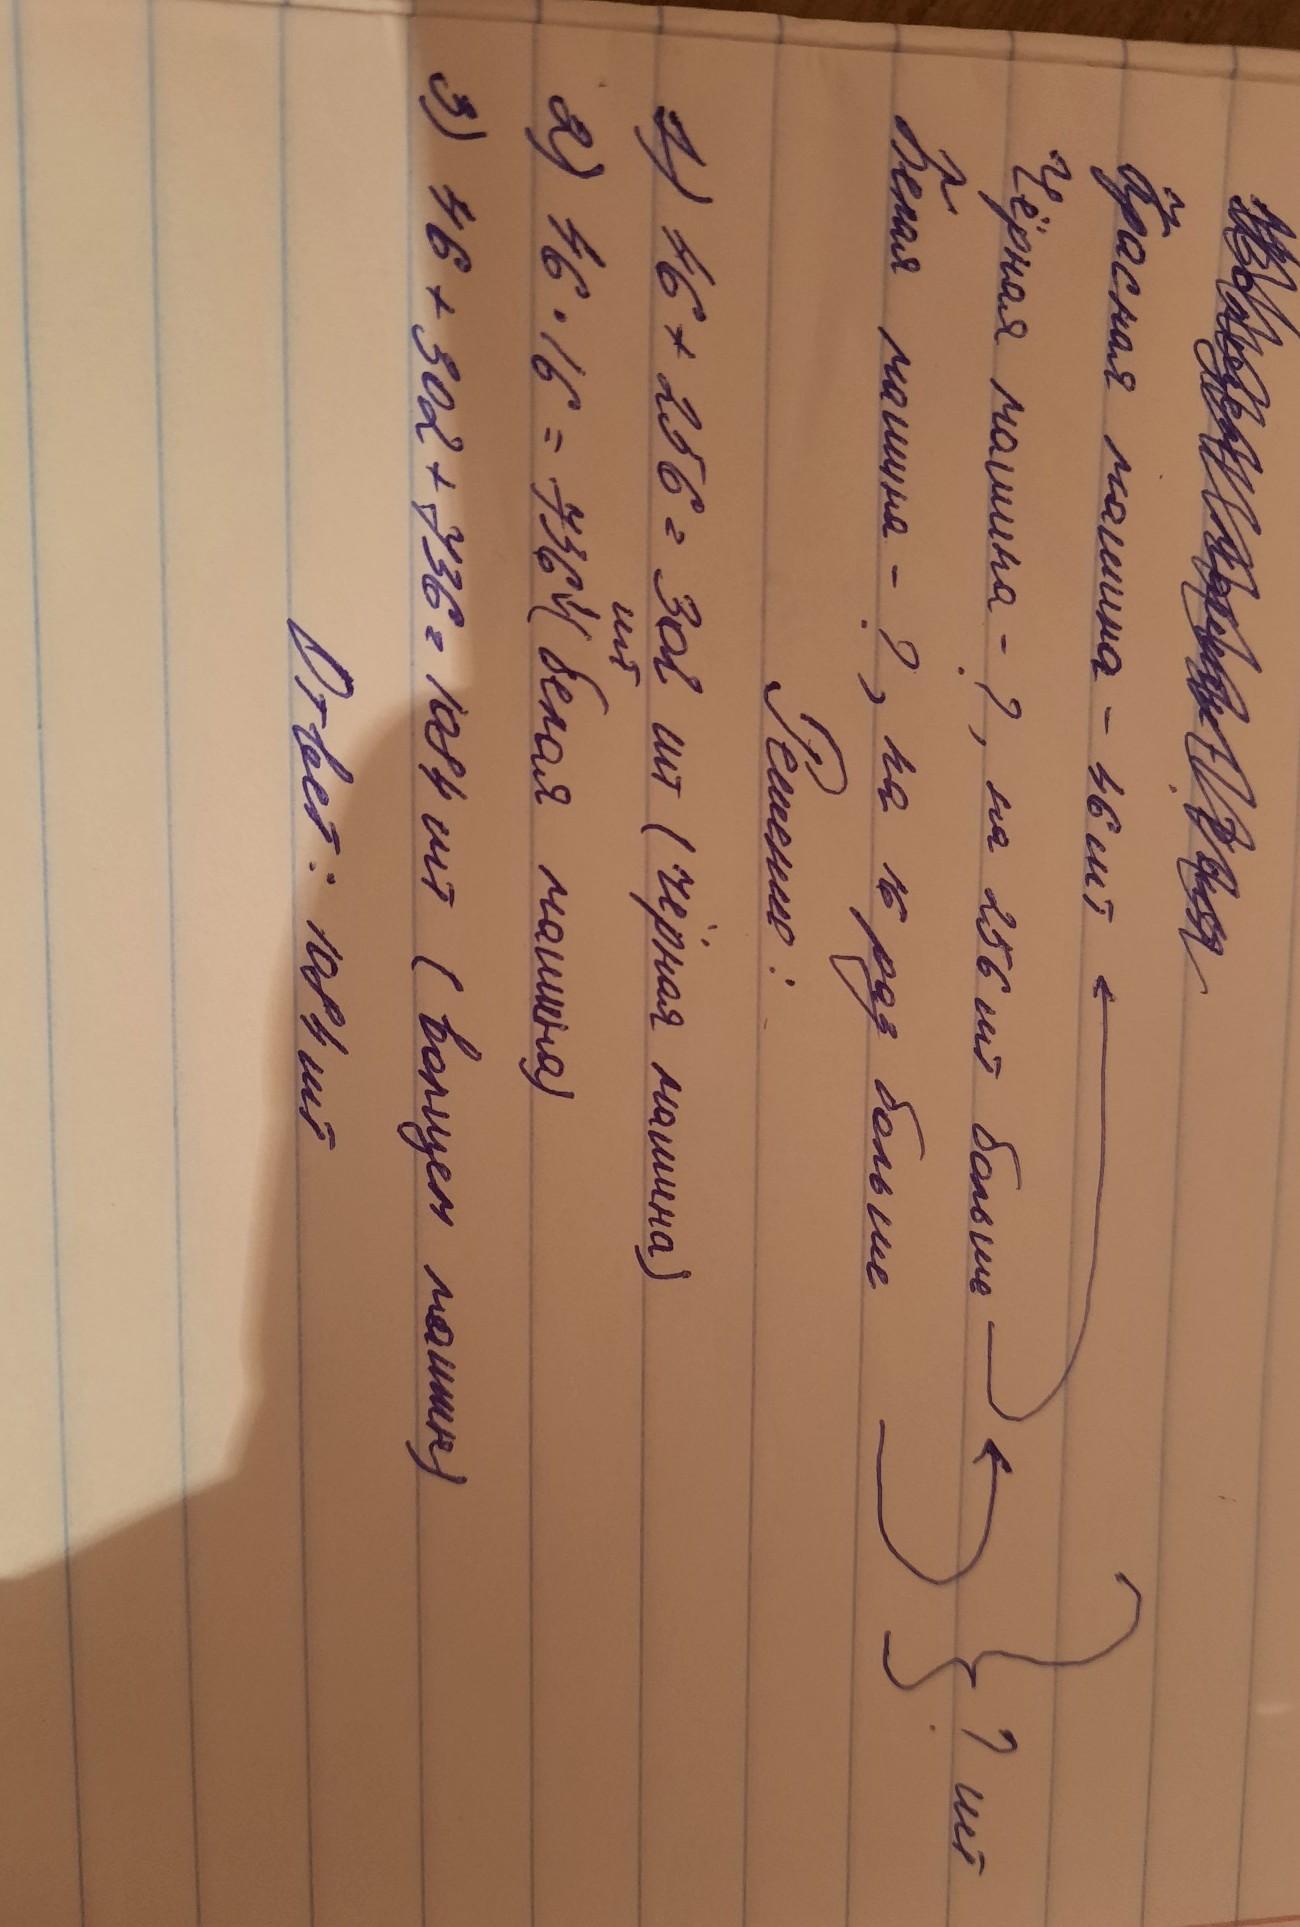 Красная машина - 46 шт
Чёрная машина - ?, на 256 шт больше
? шт
Белая машина - ?, на 16 раз больше
Решение:
1) 46 + 256 = 302 шт (чёрная машина)
2) 46 · 16 = 736 шт (белая машина)
3) 46 + 302 + 736 = 1084 шт ( машин)
Ответ: 1084 шт